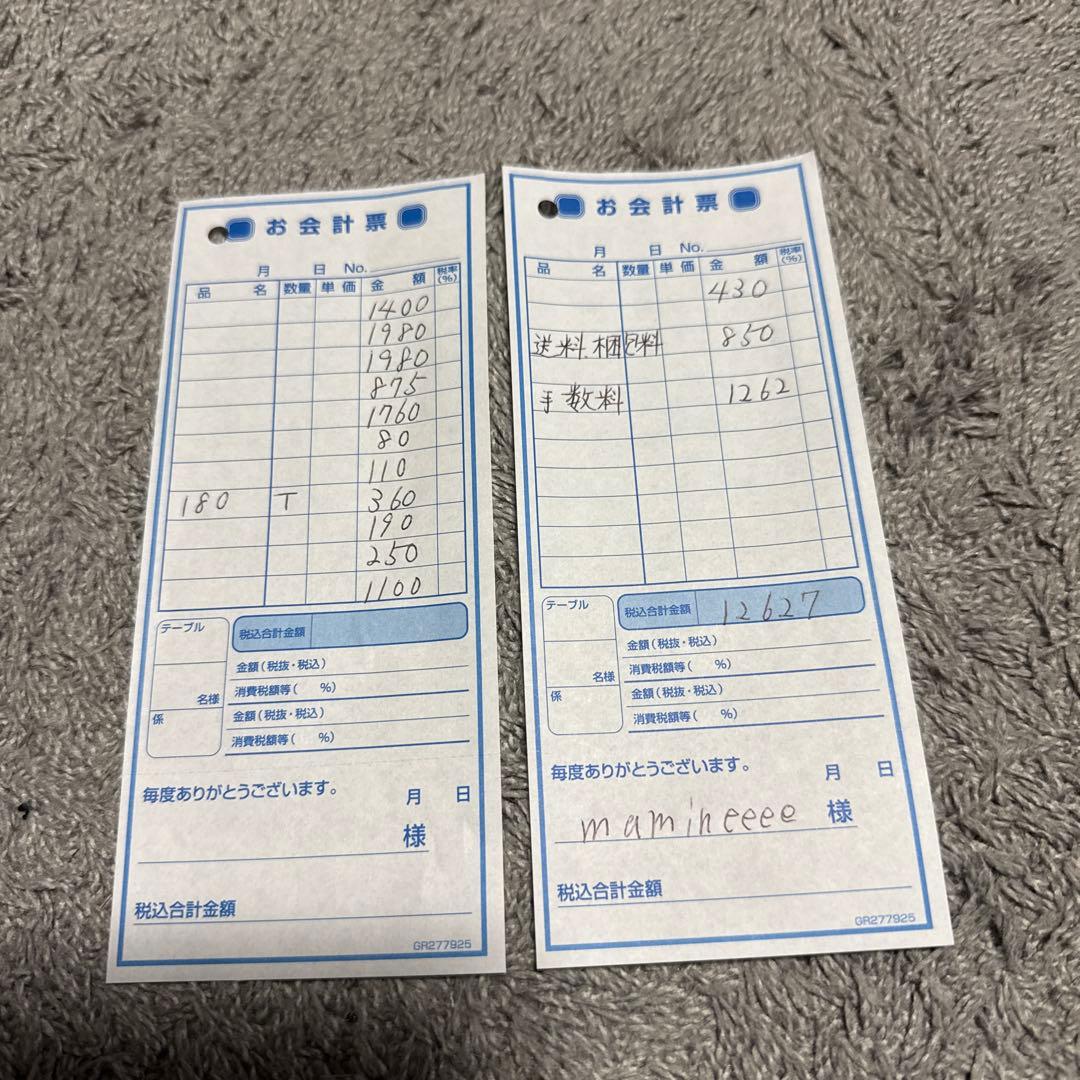 お会計票
月 日 No.
品名 数量 単価 金額 税率(%)
1400
1980
1980
875
1760
80
110
180 T 360
190
250
1100
テーブル
名様
係
税込合計金額
金額(税抜・税込)
消費税額等( %)
金額(税抜・税込)
消費税額等( %)
毎度ありがとうございます。
月 日
様
税込合計金額
GR277925
お会計票
月 日 No.
品名 数量 単価 金額 税率(%)
430
送料梱包料 850
手数料 1262
テーブル
名様
係
税込合計金額 12627
金額(税抜・税込)
消費税額等( %)
金額(税抜・税込)
消費税額等( %)
毎度ありがとうございます。
月 日
mamiheeee 様
税込合計金額
GR277925